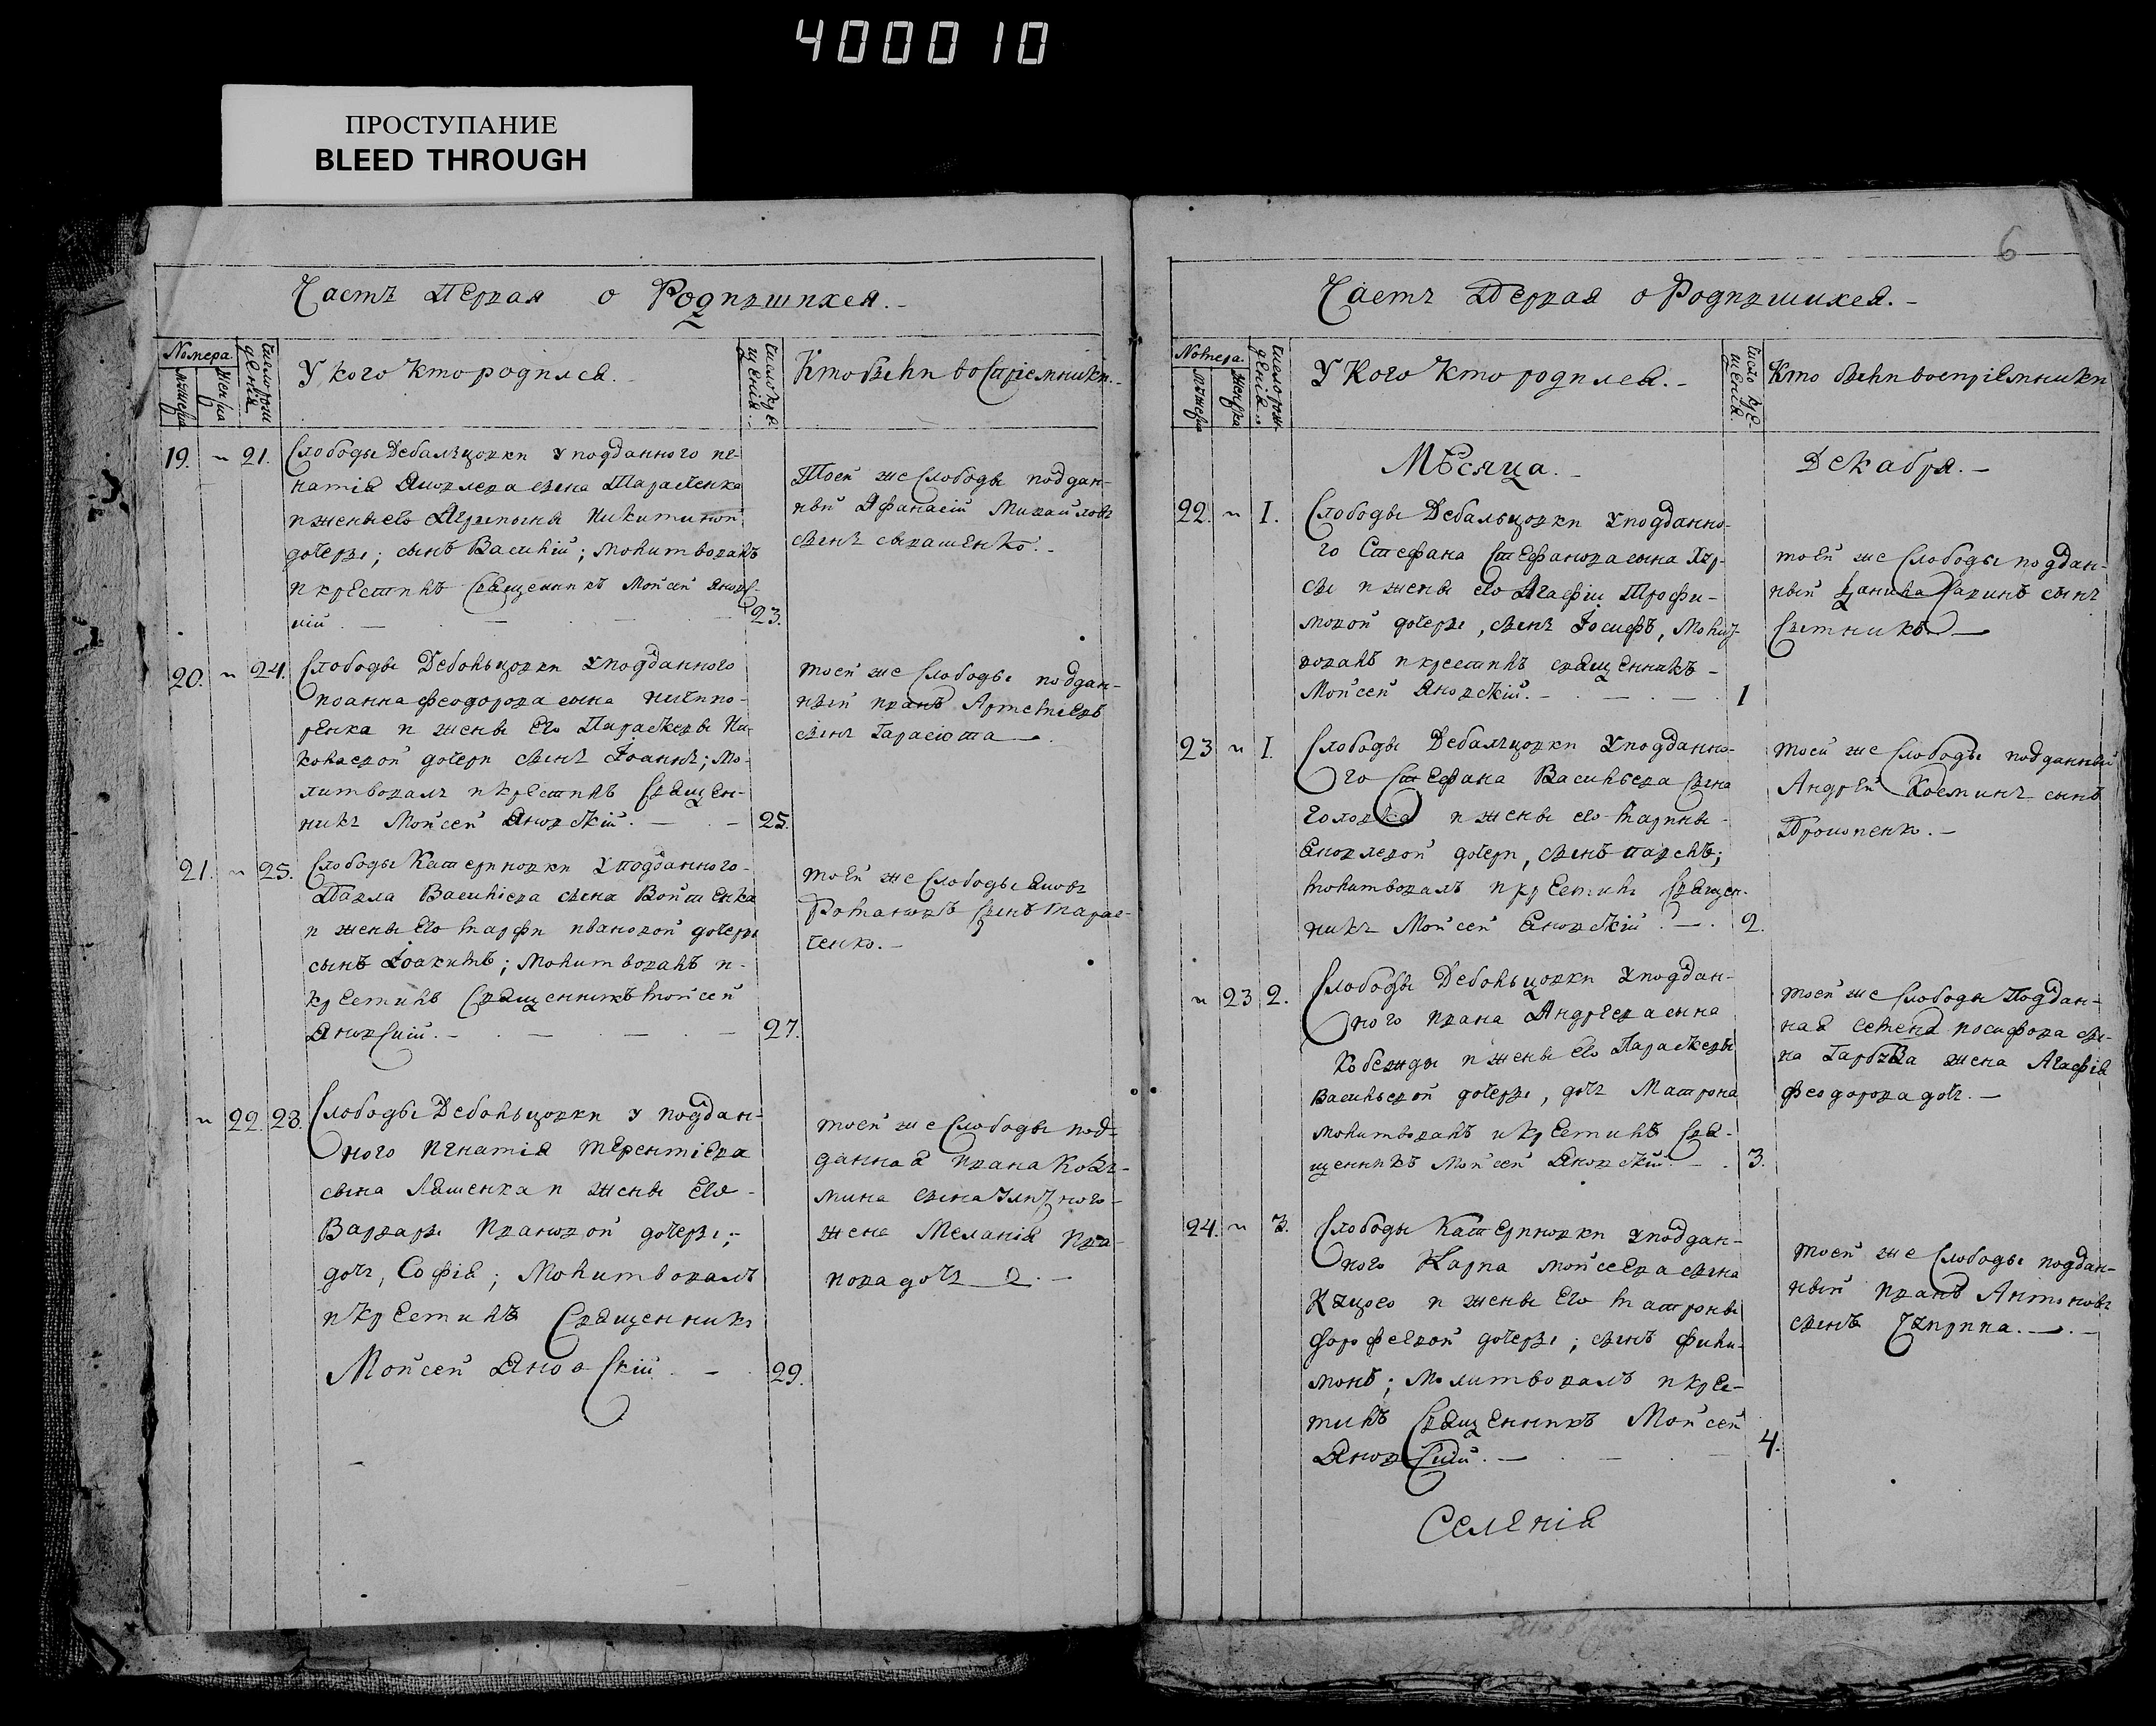 400010
ПРОСТУПАНИЕ
BLEED THROUGH
Часть Первая о Родившихся.-
Номера.
мужеска
женска
Число рождения
У кого кто родился.
Число крещенiя.
Кто были восприемники.-
19. ~ 21. Слободы Дебальцовки у подданного иг-
натiя Яковлева сына Тарасенка
и жены его Агрипины Никитиной
дочеры; сынъ Василiй; молитвовалъ
и крестилъ священникъ Мойсей Яновс-
кiй 23.
Тоей же слободы поддан-
ный Афанасiй Михайловъ
сынъ
20. ~ 24. Слободы Дебольцовки у подданного
иоанна феодорова сына
и жены его Параскевы Ни-
колаевой дочери сынъ Iоаннъ; мо-
литвовалъ и крестилъ священ-
никъ Мойсей Яновскiй. 25.
тоей же слободы поддан-
ный иванъ Артемiевъ
сынъ Гарасюта
21. ~ 25. Слободы Катериновки у подданного
Павла Василiева сына Войтенка
и жены его марфи ивановой дочеры
сынъ Iоакимъ; молитвовалъ и-
крестилъ священникъ мойсей
Яновскiй. 27.
тоей же слободы Яковъ
Романовъ сынъ тарас-
ченко.-
~ 22. 28. Слободы Дебольцовки у поддан-
ного игнатiя терентiева
сына Ляшенка и жены его
Варвары ивановой дочеры;
дочь, Софiя; молитвовалъ
и крестилъ священникъ
Мойсей Яновскiй 29.
тоей же слободы под-
данная ивана Козь-
мина сына
жена Меланiя ива-
нова дочь
6
Часть Первая о Родившихся.-
Номера.
мужеска
женска
Число рожденiя
У кого кто родился.-
Число крещенiя.
Кто были восприемники
Мѣсяца. Декабря.-
22. ~ 1. Слободы Дебальцовки у подданно-
го Стефана Стефанова сына
и жены его Агафiи Трофи-
мовой дочеры, сынъ Iосифъ, молит-
вовалъ и крестилъ священникъ -
Мойсей Яновскiй. 1
тоей же слободы поддан-
ный Данила Савинъ сынъ
23 ~ 1. Слободы Дебальцовки у подданно-
го Стефана Васильева сына
Головка и жены его марины
Яковлевой дочери, сынъ павелъ;
молитвовалъ и крестилъ священ-
никъ Мойсей Яновскiй. 2.
тоей же слободы подданный
Андрей Косминъ сынъ
~ 23 2. Слободы Дебольцовки у поддан-
ного ивана Андреева сына
Кобежды и жены его Параскевы
Васильевой дочеры, дочь Матрона
молитвовалъ и крестилъ свя-
щенникъ Мойсей Яновскiй. 3.
тоей же слободы поддан-
ная семена иосифова сы-
на Гарбуза жена Агафiя
феодорова дочь.-
24. ~ 3. Слободы Катериновки у поддан-
ного Карпа мойсеева сына
и жены его матроны
дорофеевой дочеры; сынъ фили-
монъ; молитвовалъ и крес-
тилъ священникъ Мойсей
Яновскiй. 4.
тоей же слободы поддан-
ный иванъ Антоновъ
сынъ Чуприна.-
Селенiя